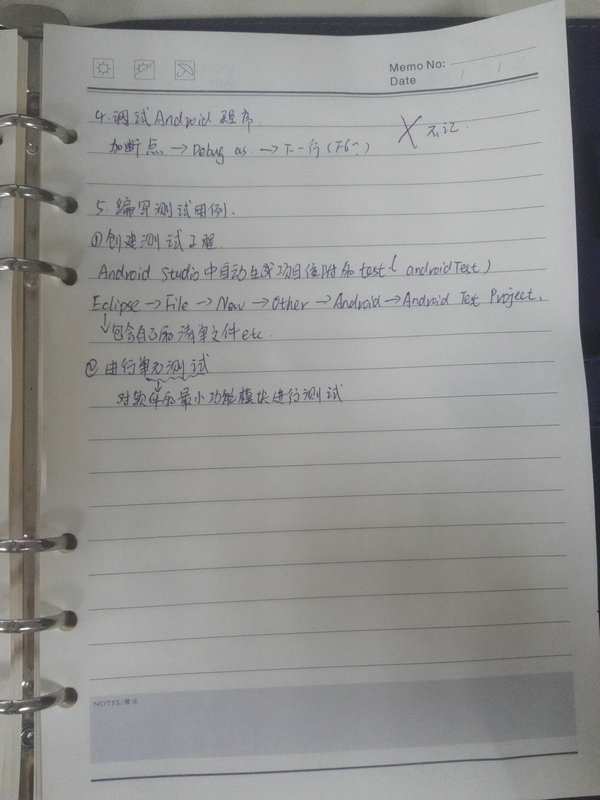 Memo No:
Date / /
4.调试Android程序.
加断点→Debug as.→下一行(F6↑) ╳ 不记.
5.编写测试用例.
①创建测试工程
Android Studio中自动生成项目自附属test(androidTest)
Eclipse→File→New→Other→Android→Android Test Project.
↓包含自己的清单文件etc.
②进行单元测试
↓
对软件的最小功能模块进行测试
NOTES/備注